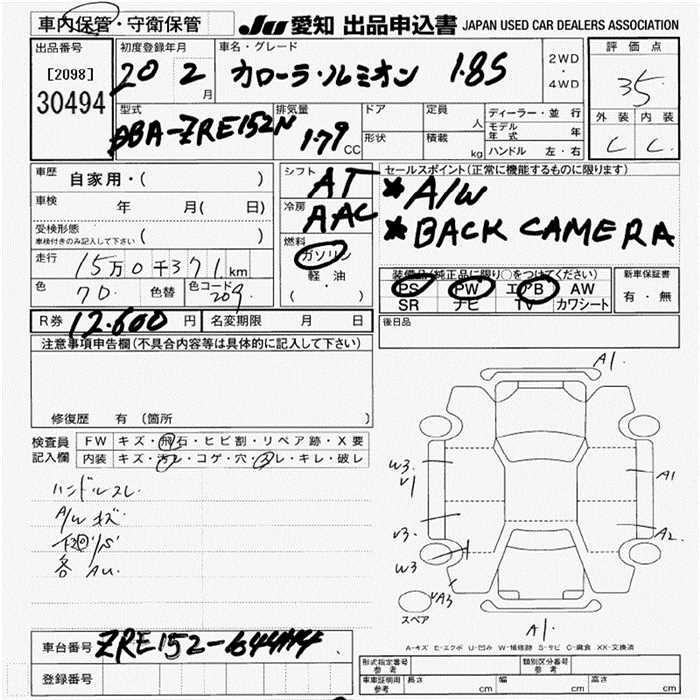 車内保管・守衛保管
JU 愛知 出品申込書 JAPAN USED CAR DEALERS ASSOCIATION
出品番号
[2098]
30494
初度登録年月
20 2 月
車名・グレード
カローラ・ルミオン 1.8S
2WD
・
4WD
評価点
3.5
外装 内装
C C
型式
DBA-ZRE152N
排気量
1.79 CC
ドア
形状
定員
人
積載
kg
ディーラー・並行
モデル年式 年
ハンドル 左・右
車歴 自家用・( )
車検 年 月( 日)
受検形態
車検付きのみ記入して下さい ( )
走行 15万0千371km
色 70 色替 色コード 209
R券 12.600 円 名変期限 月 日
シフト AT
冷房 AAC
燃料
ガソリン
軽・油
( ・ )
セールスポイント(正常に機能するものに限ります)
* A/W
* BACK CAMERA
装備品(純正品に限り○をつけてください)
PS PW エアB AW
SR ナビ TV カワシート
新車保証書
有・無
後日品
注意事項申告欄(不具合内容等は具体的に記入して下さい)
修復歴 有 (箇所
検査員記入欄
FW キズ・飛石・ヒビ割・リペア跡・X要
内装 キズ・汚レ・コゲ・穴・スレ・キレ・破レ
ハンドルスレ
A/W キズ
各 AU.
A1.
W3
V1
A1
V3.
A2
W3
VA3
スペア
A1.
A-キズ E-エクボ U-凹み W-補修跡 S-サビ C-腐食 XX-交換済
車台番号
登録番号
形式指定番号
参考
類別区分番号
参考
車車証明用
参考
長さ cm 幅 cm 高さ cm